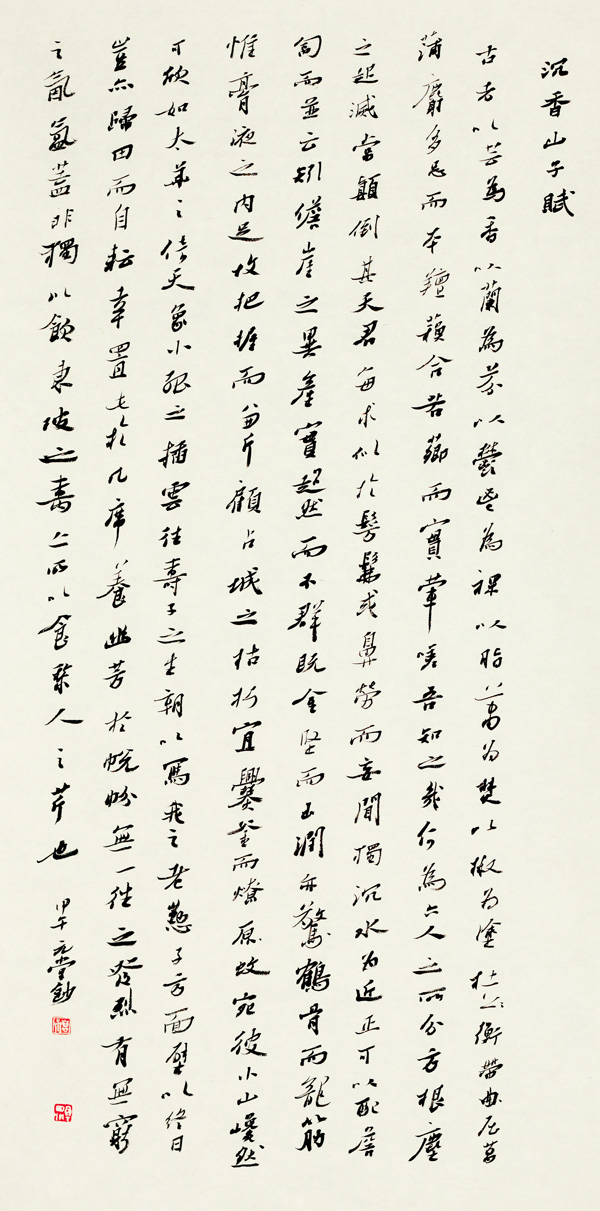 沉香山子賦
古者以芸為香以蘭為芬以鬱鬯為祼以脂蕭為焚以椒為塗杜衡帶曲屈菖
蒲麝多忌而本羶蘇合若薌而實葷嗟吾知之幾何為六入之所分方根塵
之起滅常顛倒其天君每求似於髣髴或鼻勞而妄聞獨沉水為近正可以配薝
蔔而並云矧儋崖之異產實超然而不群既金堅而玉潤亦驚鶴骨而龍筋
惟膏液之內足故把握而兼斤顧占城之枯朽宜爨釜而燎原蚊宛彼小山巉然
可欣如太華之倚天象小孤之插雲往壽子之生朝以寫我之老懃子方面壁以終日
豈亦歸田而自耘幸置此於几席養幽芳於帨帉無一往之發烈有無窮
之氤氳蓋非獨以飲東坡之壽亦所以食黎人之芹也
甲午 鈔